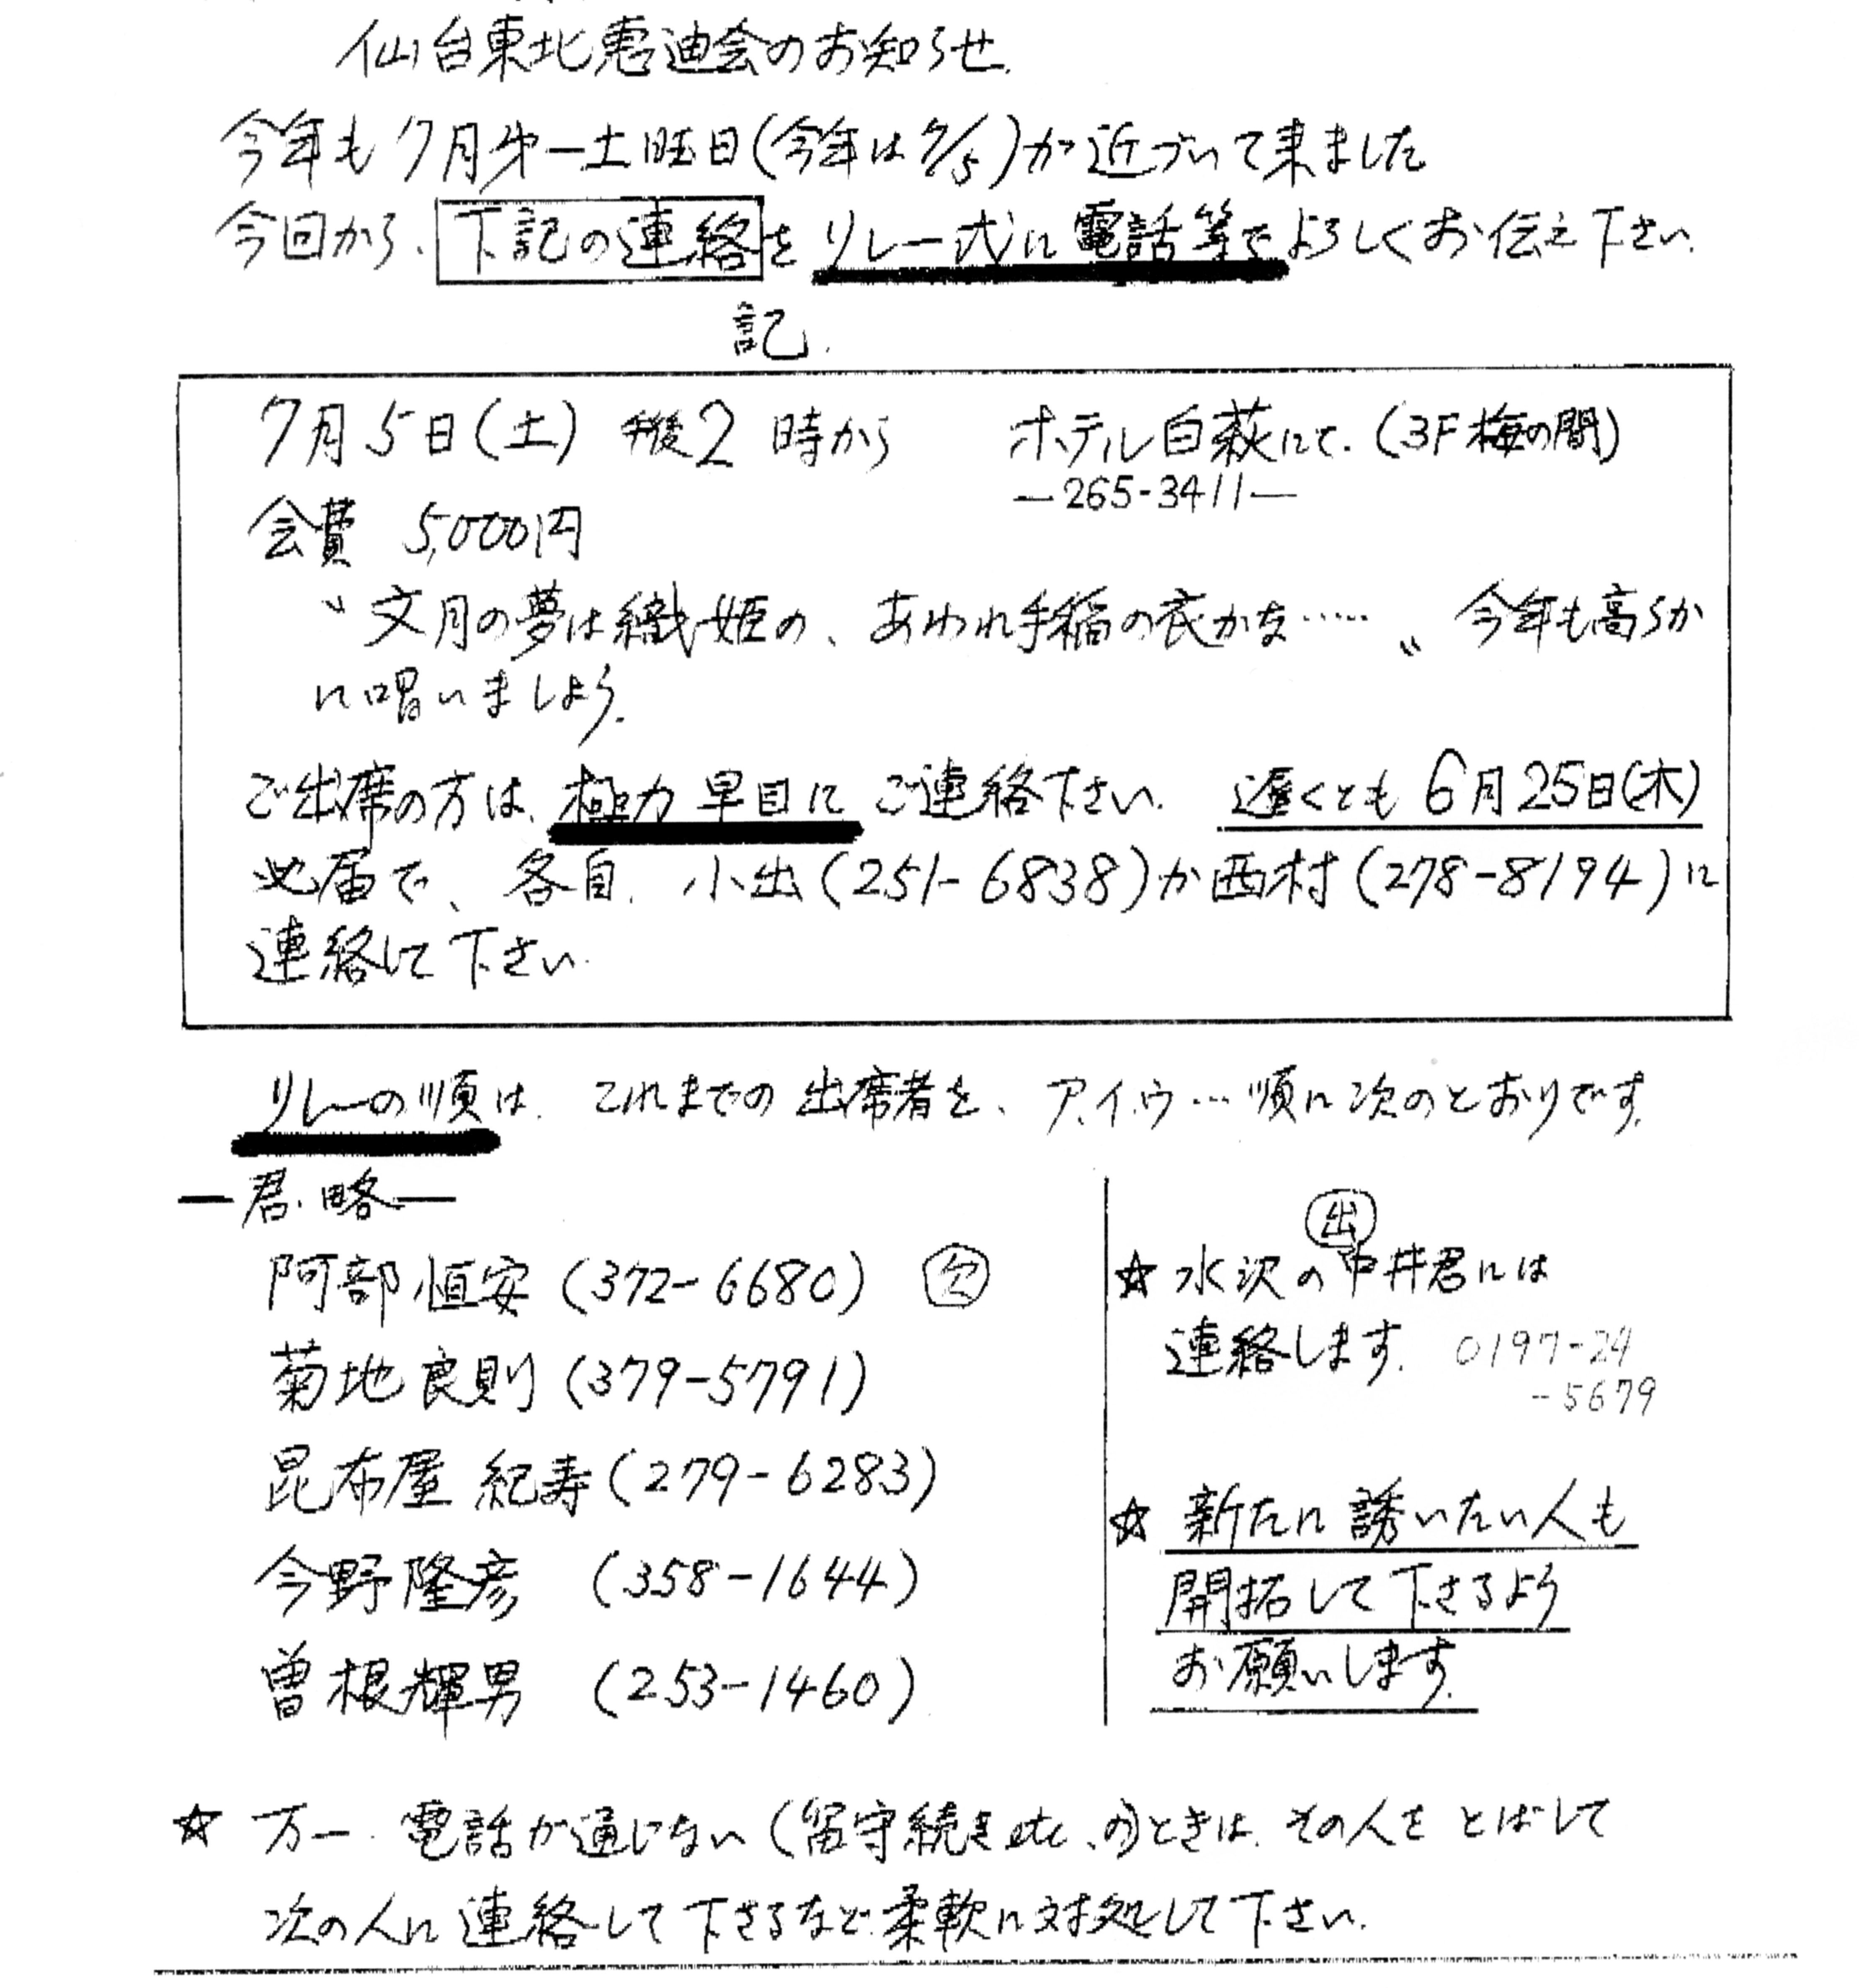 仙台東北恵迪会のお知らせ.
今年も7月第一土曜日(今年は7/5)が近づいて来ました
今回から、下記の連絡をリレー式に電話等でよろしくお伝え下さい.
記.
7月5日(土) 午後2時から ホテル白萩にて.(3F梅の間)
—265-3411—
会費 5,000円
〝文月の夢は織姫の、あわれ手稲の衣かな……〟今年も高らか
に唱いましよう.
ご出席の方は、極力早目にご連絡下さい. 遅くとも6月25日(木)
必届で、各自、小出(251-6838)か西村(278-8194)に
連絡して下さい.
リレーの順は、これまでの出席者を、ア.イ.ウ…順に次のとおりです.
—君.略—
阿部恒安(372-6680) 欠
菊地良則(379-5791)
昆布屋紀寿(279-6283)
今野隆彦 (358-1644)
曽根輝男 (253-1460)
出
☆水沢の中井君には
連絡します. 0197-24
-5679
☆新たに誘いたい人も
開拓して下さるよう
お願いします.
☆万一.電話が通じない(留守続きetc、の)ときは、その人をとばして
次の人に連絡して下さるなど.柔軟に対処して下さい.